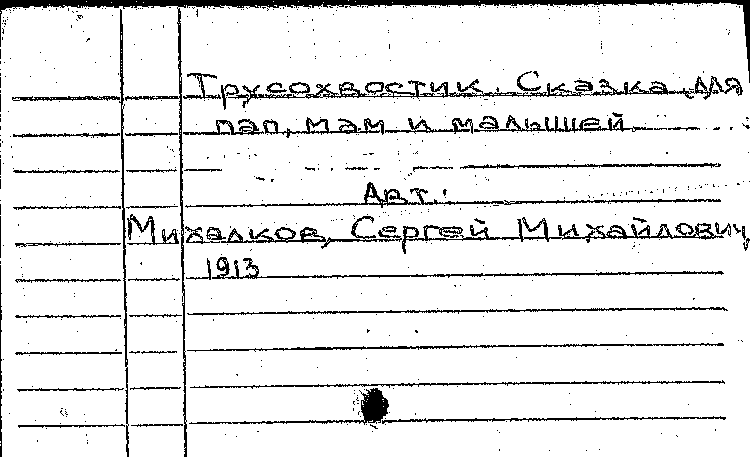 Трусохвостик. Сказка для
пап, мам и малышей.
Авт.:
Михалков, Сергей Михайлович,
1913